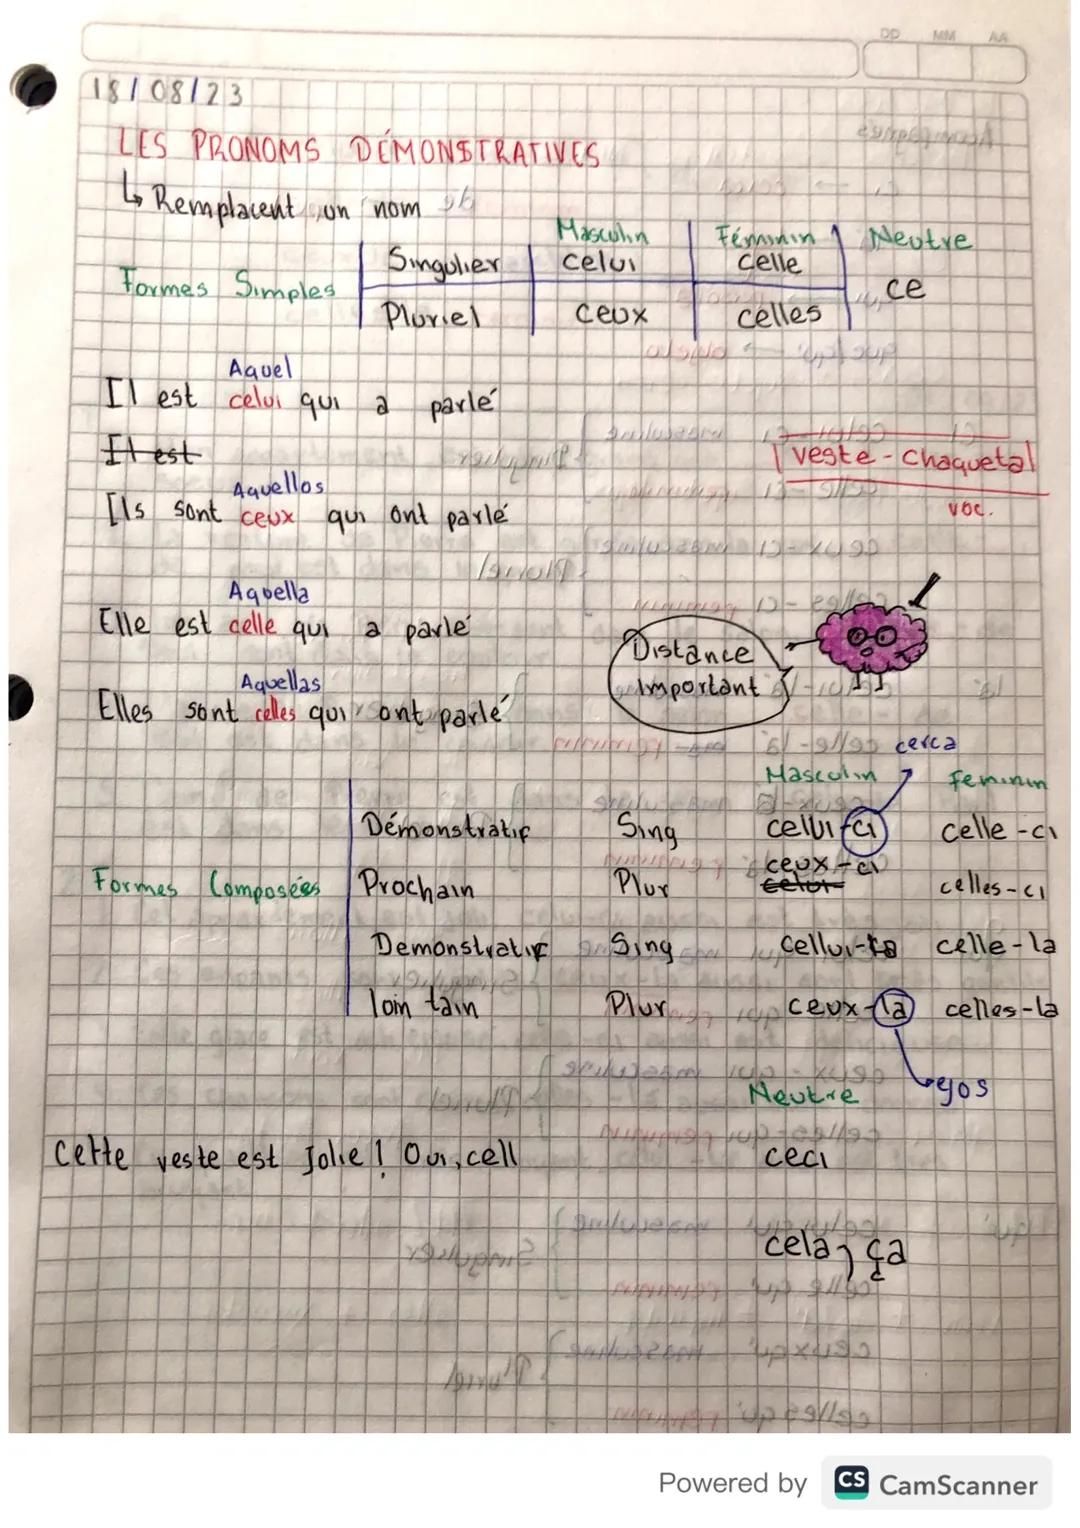 DD MM AA
18/08/23
LES PRONOMS DÉMONSTRATIVES
↳ Remplacent un nom
Masculin Féminin Neutre
Formes Simples Singulier celui celle ce
Pluriel ceux celles
Aquel
Il est celui qui a parlé
Il est
veste - chaqueta
voc.
Aquellos
Ils sont ceux qui ont parlé
Aquella
Elle est celle qui a parlé
Distance
important
Aquellas
Elles sont celles qui ont parlé
cerca
Masculin Feminin
Démonstratif Sing cellui-ci celle-ci
Formes Composées Prochain Plur ceux-ci celles-ci
celui-
Demonstratif Sing cellui-la celle-la
loin tain Plur ceux-la celles-la
Neutre
ejos
Cette veste est Jolie! Oui, cell ceci
cela, ça
Powered by CS CamScanner